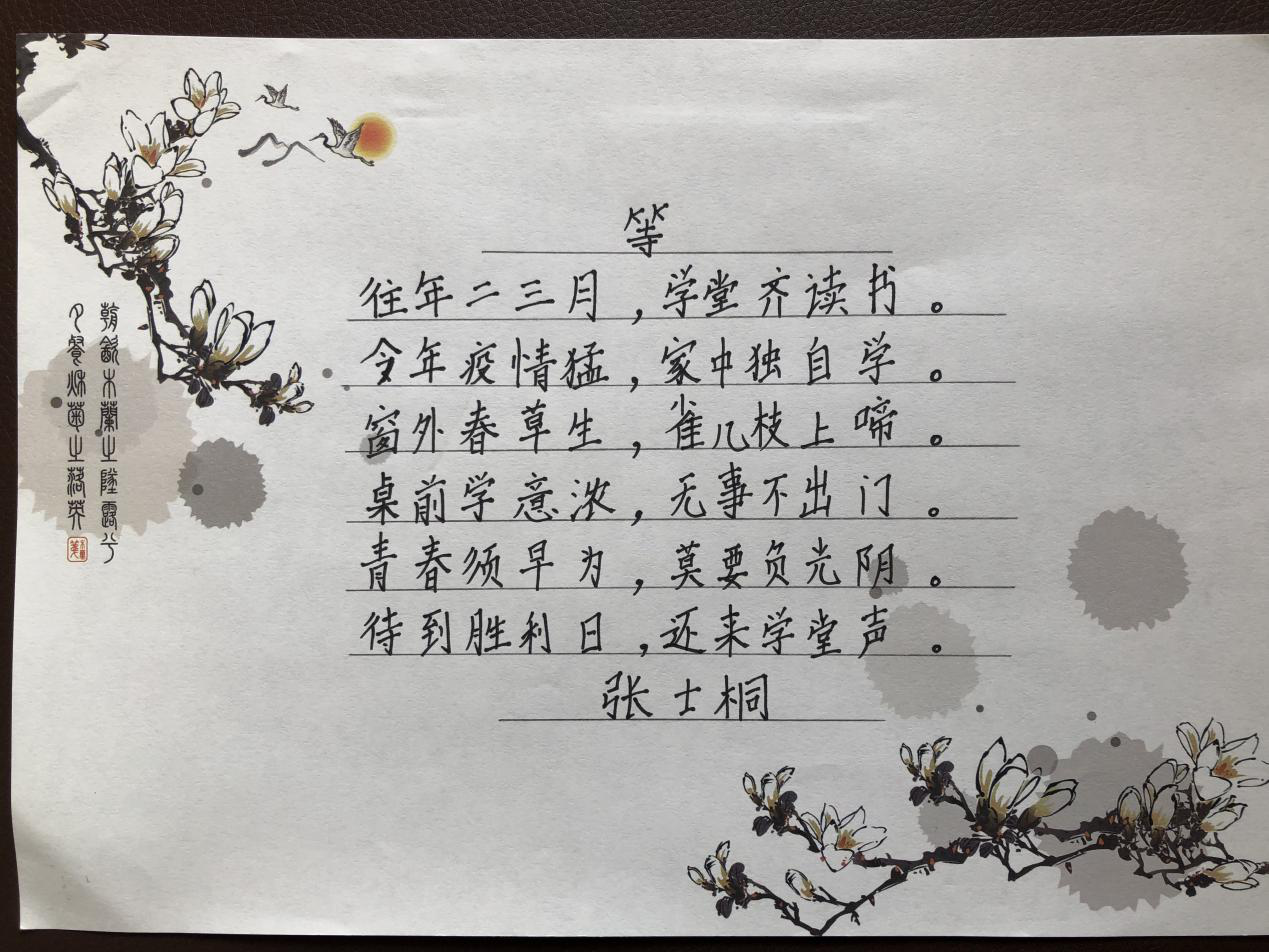 等
往年二三月，学堂齐读书。
今年疫情猛，家中独自学。
窗外春草生，雀儿枝上啼。
桌前学意浓，无事不出门。
青春须早为，莫要负光阴。
待到胜利日，还来学堂声。
张士桐
朝飲木蘭之墜露兮
夕餐秋菊之落英